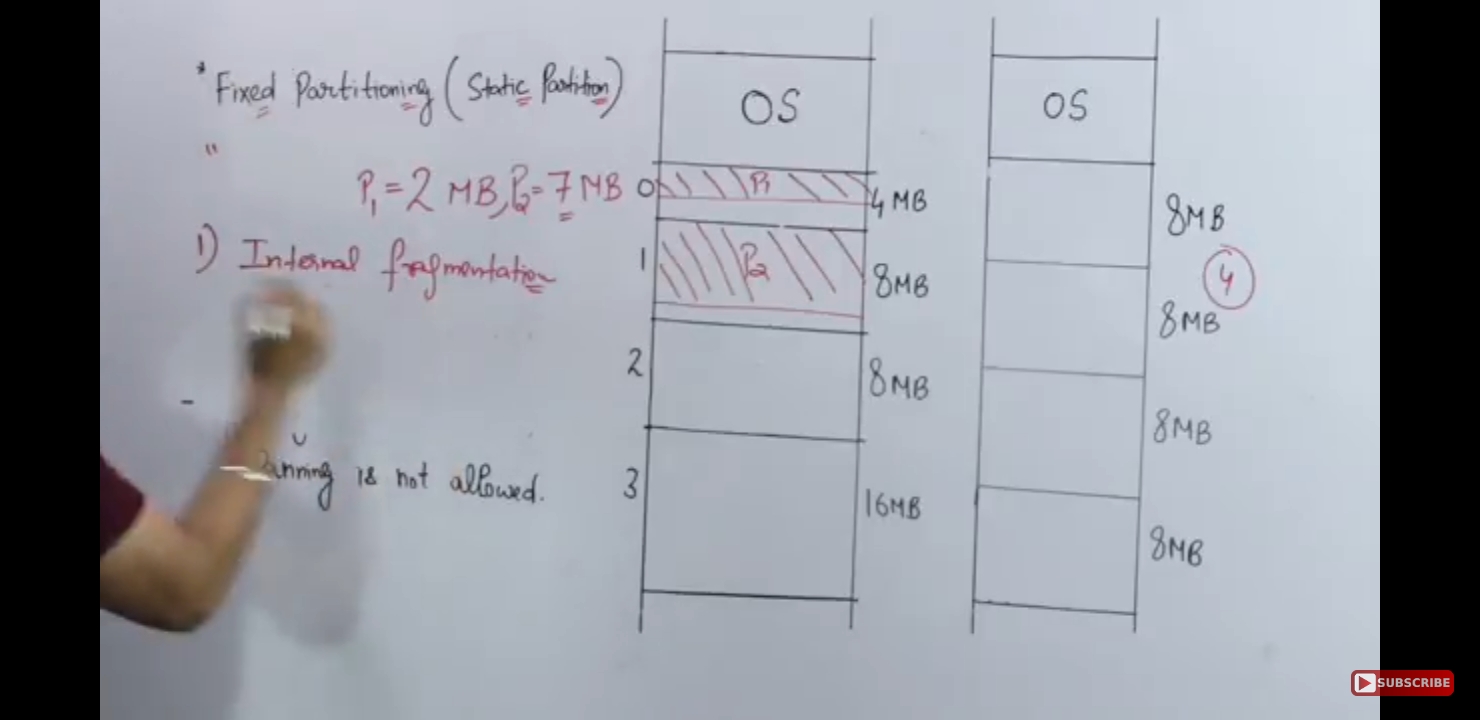 * Fixed Partitioning (Static Partition)
"
P1 = 2 MB, P2 = 7 MB
1) Internal fragmentation
-
is not allowed.
OS
0 P1 4 MB
1 P2 8MB
2 8MB
3 16MB
OS
8MB
4
8MB
8MB
8MB
SUBSCRIBE